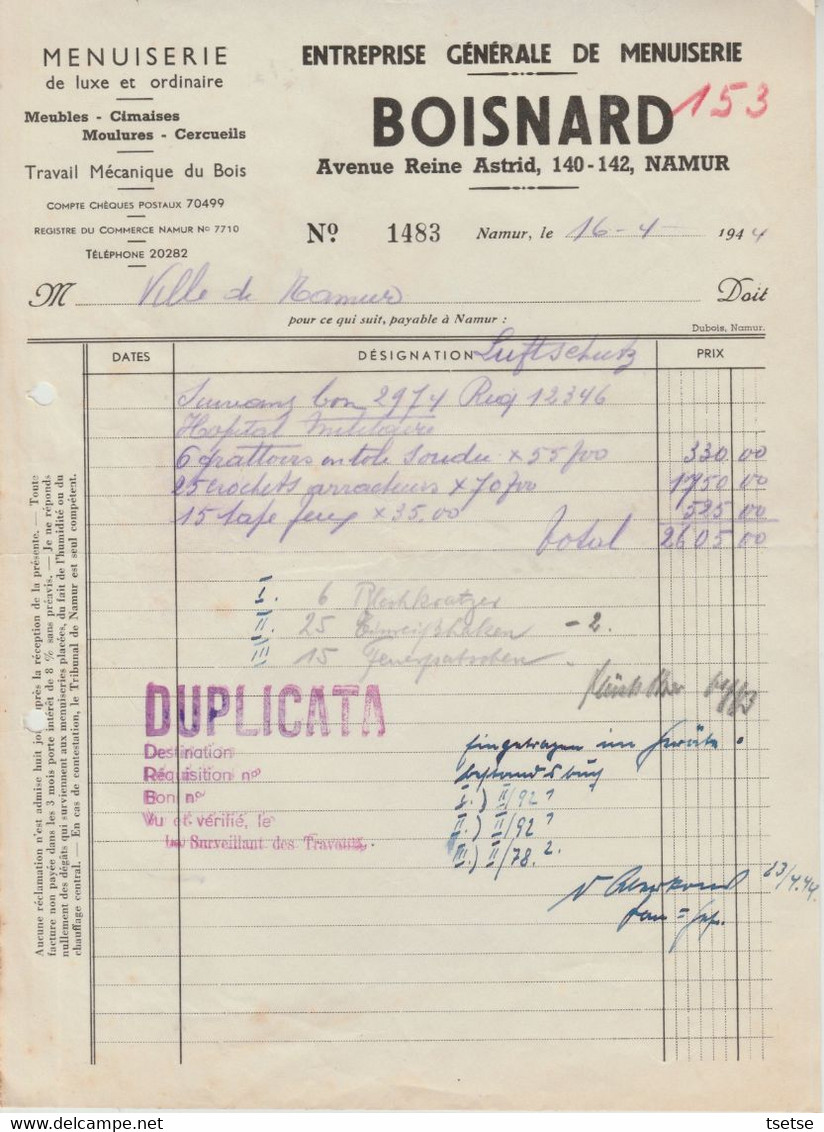 MENUISERIE
de luxe et ordinaire
Meubles - Cimaises
Moulures - Cercueils
Travail Mécanique du Bois
COMPTE CHÈQUES POSTAUX 70499
REGISTRE DU COMMERCE NAMUR No 7710
TÉLÉPHONE 20282
ENTREPRISE GÉNÉRALE DE MENUISERIE
BOISNARD
153
Avenue Reine Astrid, 140-142, NAMUR
No 1483 Namur, le 16-4- 1944
M Ville de Namur Doit
pour ce qui suit, payable à Namur :
Dubois, Namur.
DATES DÉSIGNATION Luftschutz PRIX
Suivant bon 2974 Req 12346
Hopital Militaire
6 grattoirs en tole Soudée x 55,00 330 00
25 crochets arracheurs x 70,00 1750 00
15 tape feux x 35.00 525 00
total 2605 00
I. 6 Blechkratzer
II. 25 Einreißhaken - 2.
III 15 Feuerpatschen
DUPLICATA
Destination
Réquisition no
Bon no
Vu et vérifié, le
Le Surveillant des Travaux,
Eingetragen im Geräte
bestandsbuch
I.) II/92
II.) II/92
III.) II/78.
23/4.44.
Aucune réclamation n'est admise huit jours après la réception de la présente. — Toute
facture non payée dans les 3 mois porte intérêt de 8 % sans préavis. — Je ne réponds
nullement des dégâts qui surviennent aux menuiseries placées, du fait de l'humidité ou du
chauffage central. — En cas de contestation, le Tribunal de Namur est seul compétent.
Delcampe.net
tsetse